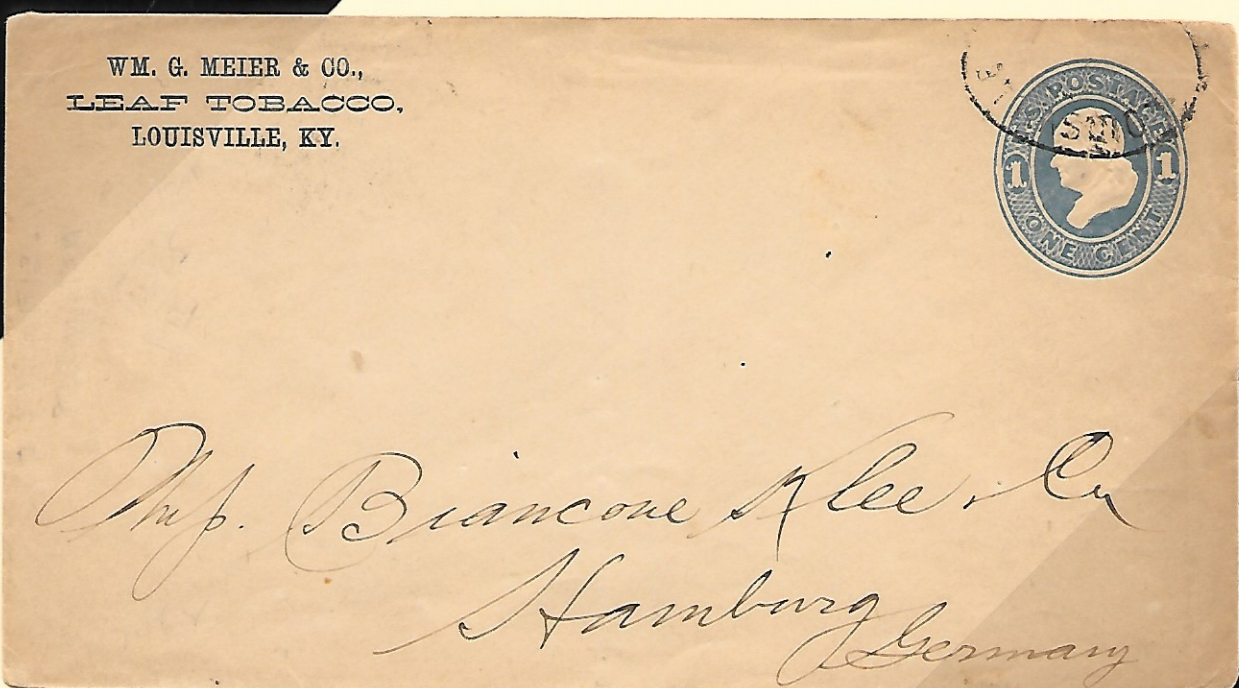 WM. G. MEIER & CO.,
LEAF TOBACCO,
LOUISVILLE, KY.
U.S. POSTAGE
1 1
ONE CENT
Mess. Biancone Klee & Co
Hamburg
Germany